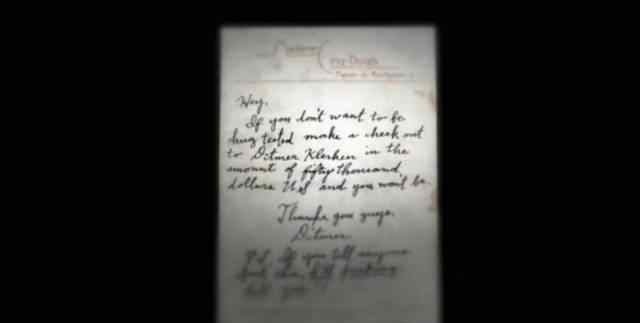 Hey,
If you don't want to be
drug tested make a check out
to Ditmer Klerken in the
amount of fifty thousand
dollars U.S and you won't be.
Thanks you guys.
Ditmer
P.S. If you tell anyone